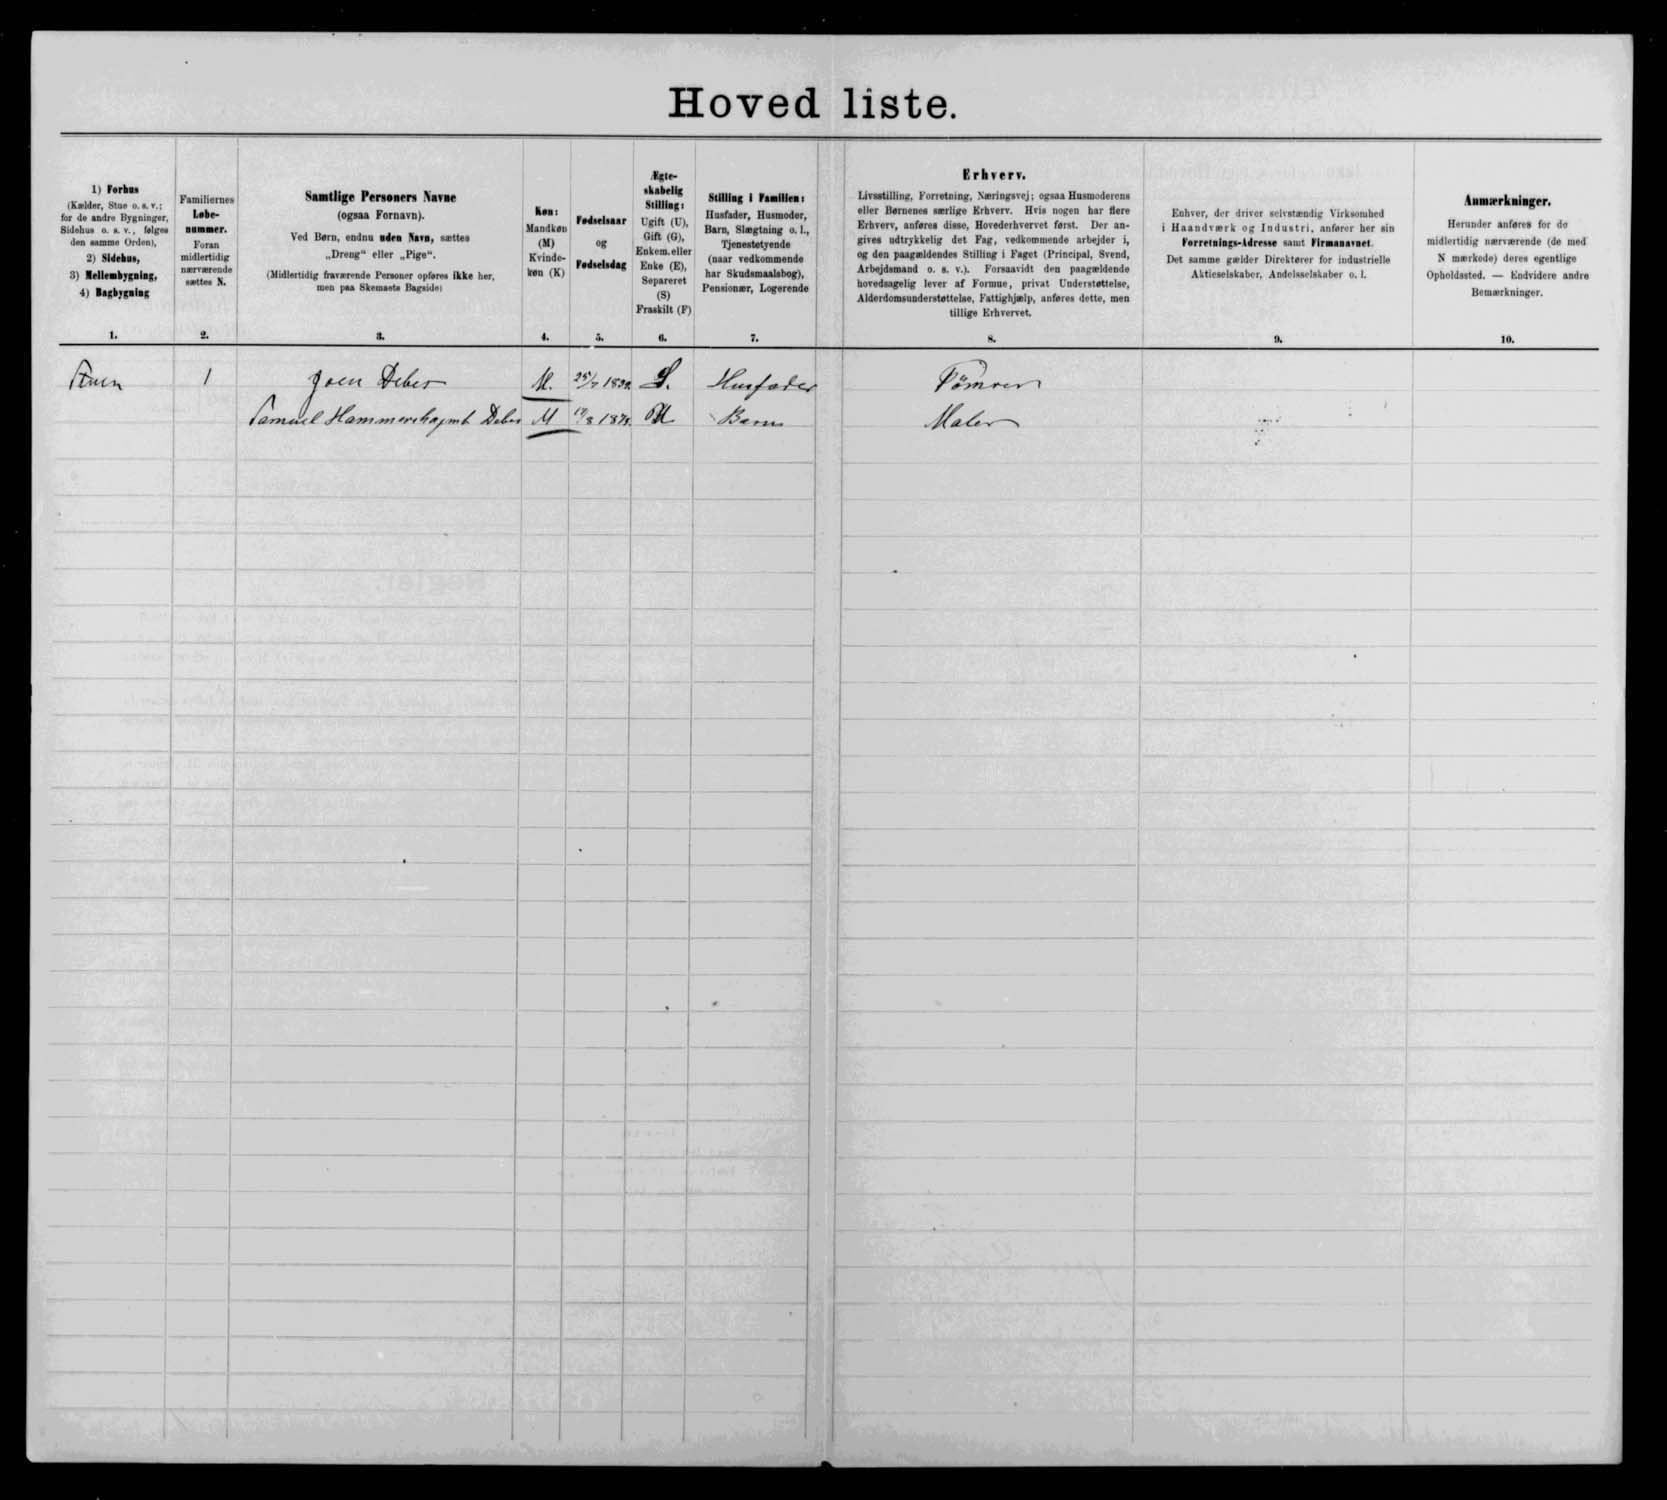 Hovedliste.
1) Forhus
(Kælder, Stue o. s. v.;
for de andre Bygninger,
Sidehus o. s. v., følges
den samme Orden),
2) Sidehus,
3) Mellembygning,
4) Bagbygning
1.
Familiernes
Løbe-
nummer.
Foran
midlertidig
nærværende
sættes N.
2.
Samtlige Personers Navne
(ogsaa Fornavn).
Ved Børn, endnu uden Navn, sættes
„Dreng“ eller „Pige“.
(Midlertidig fraværende Personer opføres ikke her,
men paa Skemaets Bagside)
3.
Køn:
Mandkøn
(M)
Kvinde-
køn (K)
4.
Fødselsaar
og
Fødselsdag
5.
Ægte-
skabelig
Stilling:
Ugift (U),
Gift (G),
Enkem. eller
Enke (E),
Separeret
(S)
Fraskilt (F)
6.
Stilling i Familien:
Husfader, Husmoder,
Barn, Slægtning o. l.,
Tjenestetyende
(naar vedkommende
har Skudsmaalsbog),
Pensionær, Logerende
7.
Erhverv.
Livsstilling, Forretning, Næringsvej; ogsaa Husmoderens
eller Børnenes særlige Erhverv. Hvis nogen har flere
Erhverv, anføres disse, Hovederhvervet først. Der an-
gives udtrykkelig det Fag, vedkommende arbejder i,
og den paagældendes Stilling i Faget (Principal, Svend,
Arbejdsmand o. s. v.). Forsaavidt den paagældende
hovedsagelig lever af Formue, privat Understøttelse,
Alderdomsunderstøttelse, Fattighjælp, anføres dette, men
tillige Erhvervet.
8.
Enhver, der driver selvstændig Virksomhed
i Haandværk og Industri, anfører her sin
Forretnings-Adresse samt Firmanavnet.
Det samme gælder Direktører for industrielle
Aktieselskaber, Andelsselskaber o. l.
9.
Anmærkninger.
Herunder anføres for de
midlertidig nærværende (de med
N mærkede) deres egentlige
Opholdssted. — Endvidere andre
Bemærkninger.
10.
Stuen 1 Joen Debes M. S. Husfader Tømrer
Samuel Hammershaimb Debes M U Barn Maler